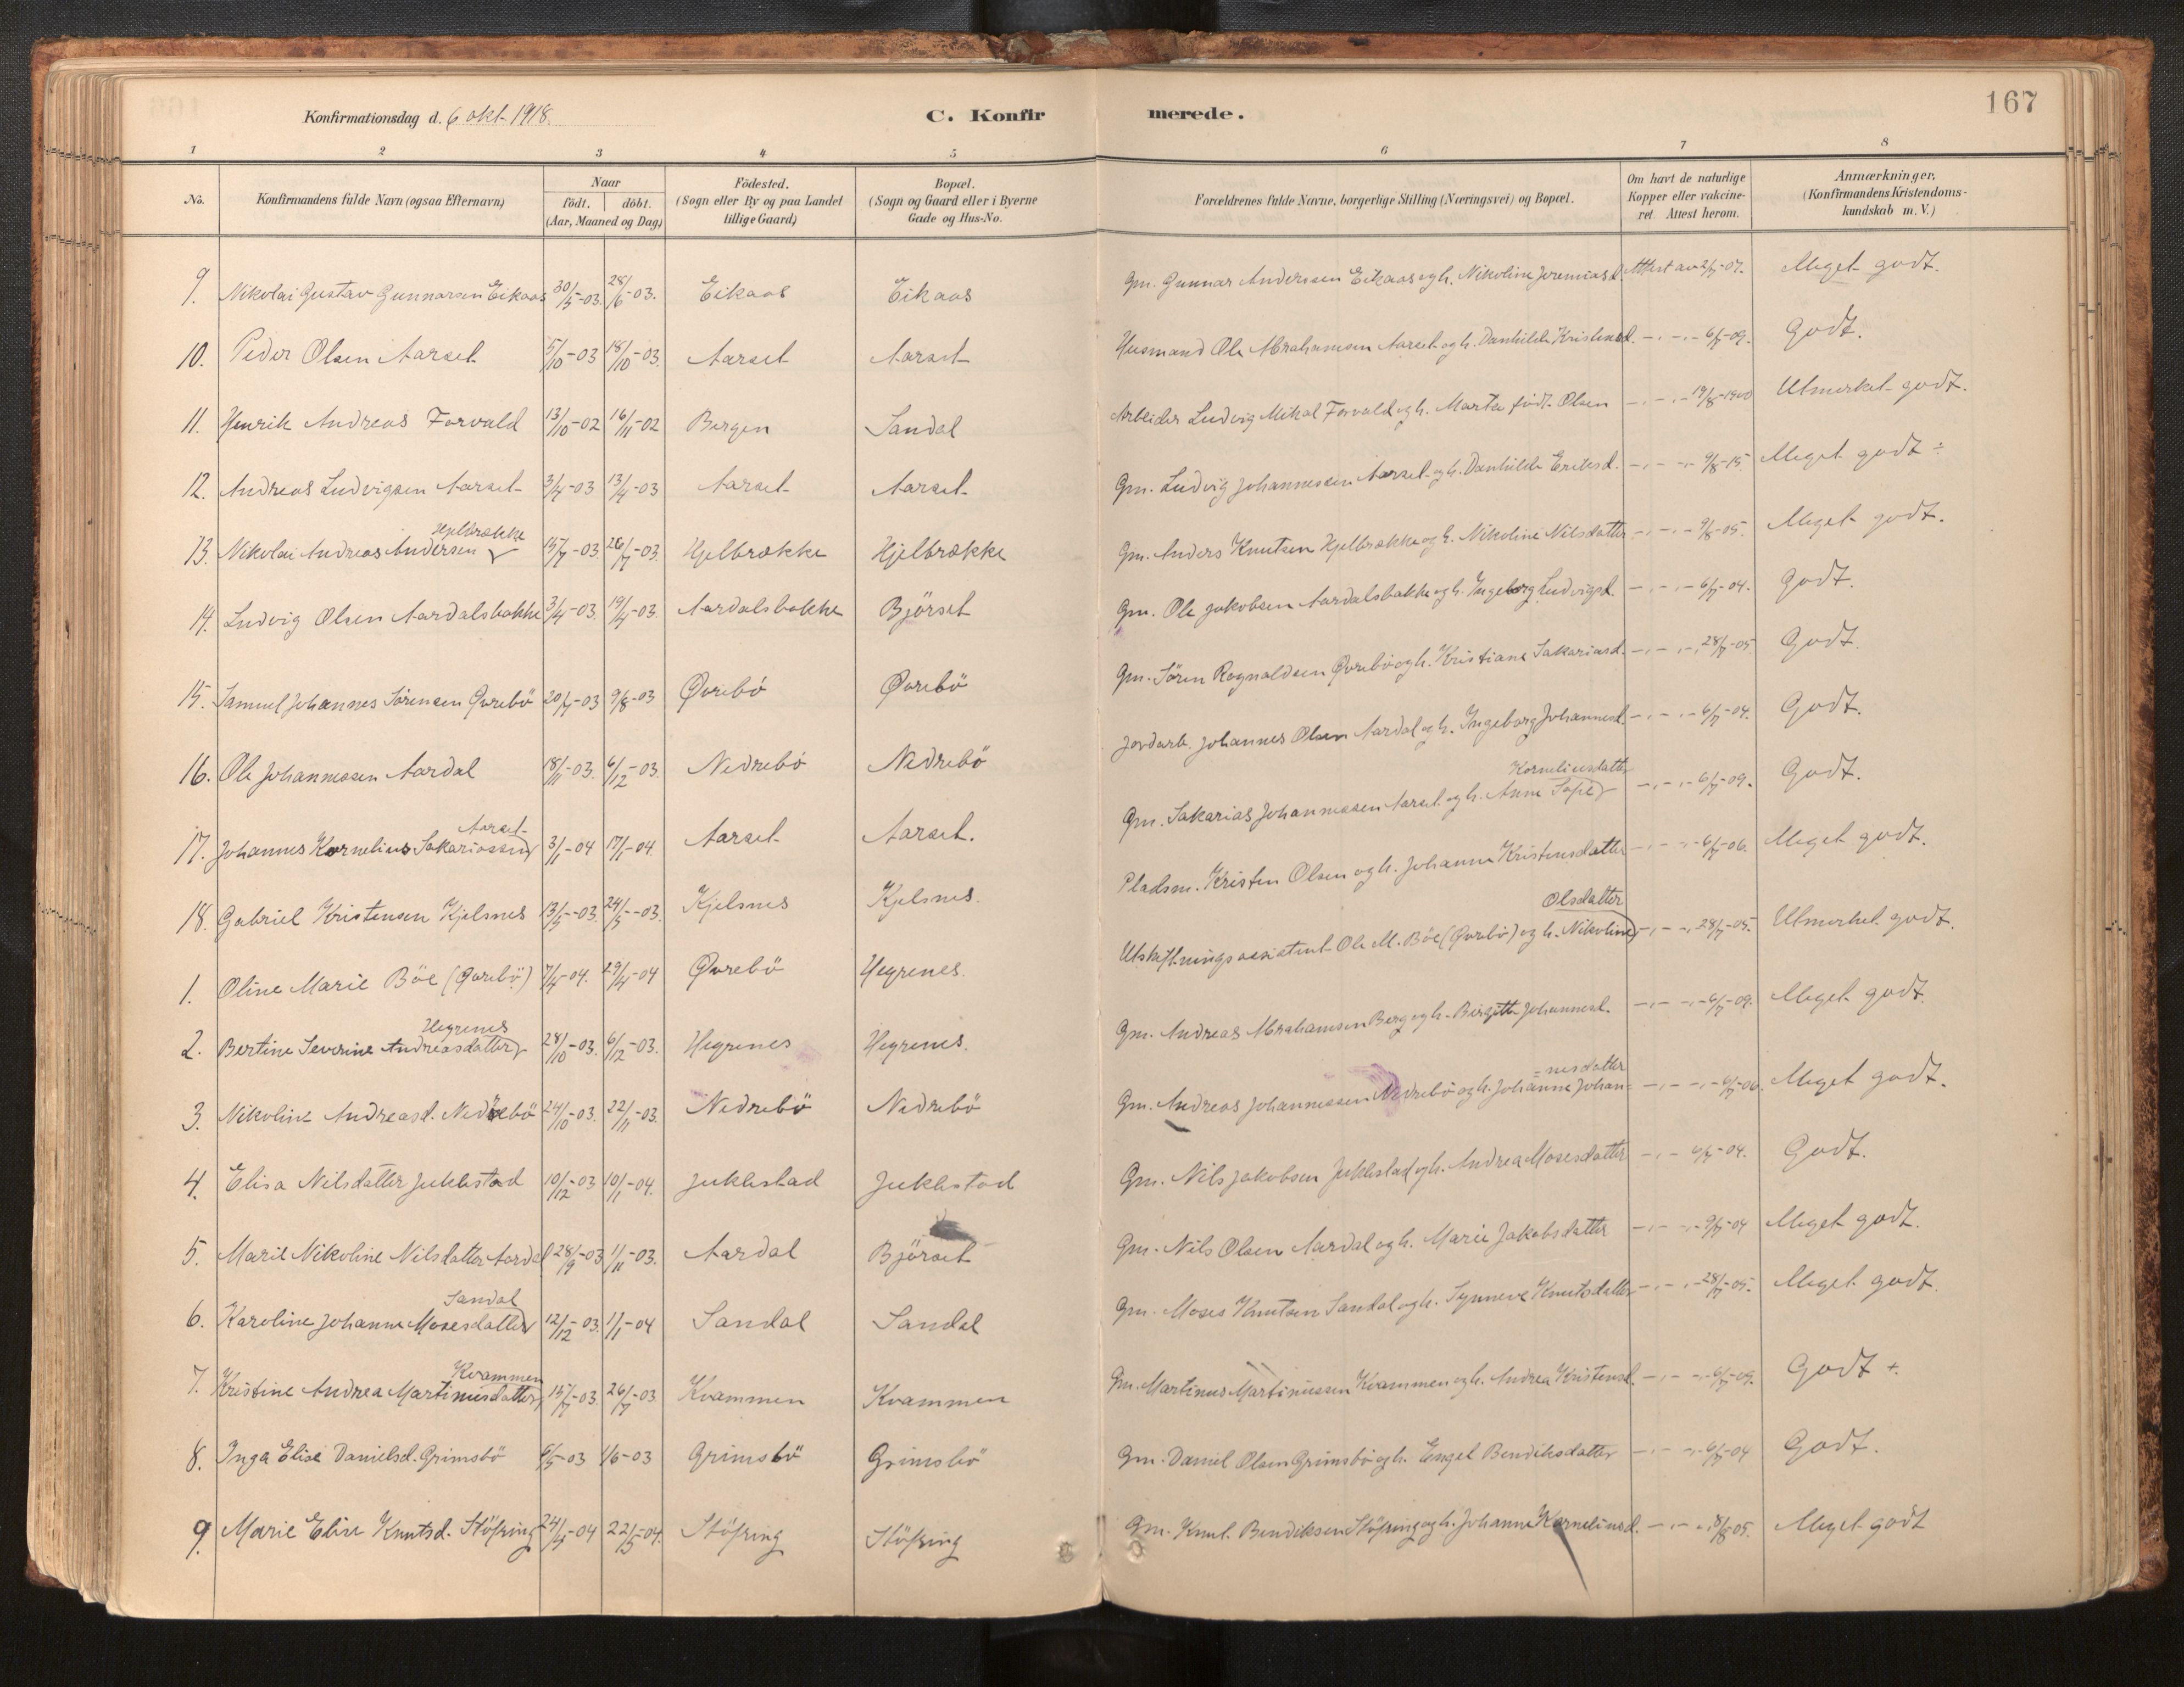 Konfirmationsdag d. 6 okt. 1918. C. Konfirmerede. 167
1 2 3 4 5 6 7 8
No. Konfirmandens fulde Navn (ogsaa Efternavn) Naar födt. döbt. (Aar, Maaned og Dag) Födested. (Sogn eller By og paa Landet tillige Gaard) Bopæl. (Sogn og Gaard eller i Byerne Gade og Hus-No. Forældrenes fulde Navne, borgerlige Stilling (Næringsvei) og Bopæl. Om havt de naturlige Kopper eller vakcineret. Attest herom. Anmærkninger. (Konfirmandens Kristendomskundskab m. V.)
9. Nikolai Gustav Gunnarsen Eikaas 30/5-03. 28/6-03. Eikaas Eikaas Gm. Gunnar Anderssen Eikaas og h. Nikoline Jeremiasd. Attest av 2/7-07. Meget godt.
10. Peder Olsen Aarset 5/10-03 18/10-03. Aarset Aarset Husmand Ole Abrahamsen Aarset og h. Danhilde Kristensd. -"- -"- 6/7-09. Godt.
11. Henrik Andreas Forvald 13/10-02 16/11-02 Bergen Sandal Arbeider Ludvig Mikal Forvald og h. Marta födt Olsen -"- -"- 19/8-1900 Utmerket godt.
12. Andreas Ludvigsen Aarset 3/4-03 13/4-03 Aarset Aarset Gm. Ludvig Johannessen Aarset og h. Danhilde Eriksd. -"- -"- 9/8-15. Meget godt ÷
13. Nikolai Andreas Andersen Hjelbrække 15/7-03. 26/7-03. Hjelbrække Hjelbrække Gm. Anders Knutsen Hjelbrække og h. Nikoline Nilsdatter -"- -"- 9/8-05. Meget godt.
14. Ludvig Olsen Aardalsbakke 3/4-03. 19/4-03. Aardalsbakke Björset Gm. Ole Jakobsen Aardalsbakke og h. Ingeborg Ludvigsd. -"- -"- 6/7-04. Godt.
15. Samuel Johannes Sörensen Övrebö 20/7-03 9/8-03 Övrebö Övrebö Gm. Sören Ragnaldsen Övrebö og h. Kristiane Sakariasd. -"- -"- 28/7-05 Godt.
16. Ole Johannessen Aardal 18/11-03. 6/12-03. Nedrebö Nedrebö Jordarb. Johannes Olsen Aardal og h. Ingeborg Johannesd. -"- -"- 6/7-04. Godt.
17. Johannes Kornelius Sakariassen Aarset 3/1-04 17/1-04. Aarset Aarset. Gm. Sakarias Johannessen Aarset og h. Anne Sofie Korneliusdatter -"- -"- 6/7-09. Godt.
18. Gabriel Kristensen Kjelsnes 13/5-03. 24/5-03. Kjelsnes Kjelsnes. Pladsm. Kristen Olsen og h. Johanne Kristensdatter -"- -"- 6/7-06. Meget godt.
1. Oline Marie Böe (Övrebö) 7/4-04. 29/4-04 Övrebö Hegrenes. Utskiftningsassistent Ole M. Böe (Övrebö) og h. Nikoline Olsdatter -"- -"- 28/7-05. Utmerket godt.
2. Bertine Severine Andreasdatter Hegrenes 28/10-03. 6/12-03. Hegrenes Hegrenes. Gm. Andreas Abrahamsen Berg og h. Birgitte Johannesd. -"- -"- 6/7-09. Meget godt.
3. Nikoline Andreasd. Nedrebö 24/10-03. 22/11-03. Nedrebö Nedrebö Gm. Andreas Johannessen Nedrebö og h. Johanne Johan=nesdatter -"- -"- 6/7-06. Meget godt.
4. Elisa Nilsdatter Juklestad 10/12-03 10/1-04. Juklestad Juklestad Gm. Nils Jakobsen Juklestad og h. Andrea Mosesdatter -"- 6/7-04. Godt.
5. Marie Nikoline Nilsdatter Aardal 28/9-03 1/11-03. Aardal Björset Gm. Nils Olsen Aardal og h. Marie Jakobsdatter -"- -"- 9/7-04 Meget godt.
6. Karoline Johanne Mosesdatter Sandal 12/12-03. 1/1-04 Sandal Sandal Gm. Moses Knutsen Sandal og h. Synneve Knutsdatter -"- -"- 28/7-05. Meget godt.
7. Kristine Andrea Martinusdatter Kvammen 15/7-03. 26/7-03. Kvammen Kvammen Gm. Martinus Martinussen Kvammen og h. Andrea Kristensd. -"- -"- 6/7-09. Godt +
8. Inga Elise Danielsd. Grimsbö 6/5-03 1/6-03 Grimsbö Grimsbö Gm. Daniel Olsen Grimsbö og h. Engel Bendiksdatter -"- -"- 6/7-04 Godt.
9. Marie Elise Knutsd. Stöfring 24/4-04 22/5-04. Stöfring Stöfring Gm. Knut Bendiksen Stöfring og h. Johanne Korneliusd. -"- -"- 18/8-05. Meget godt